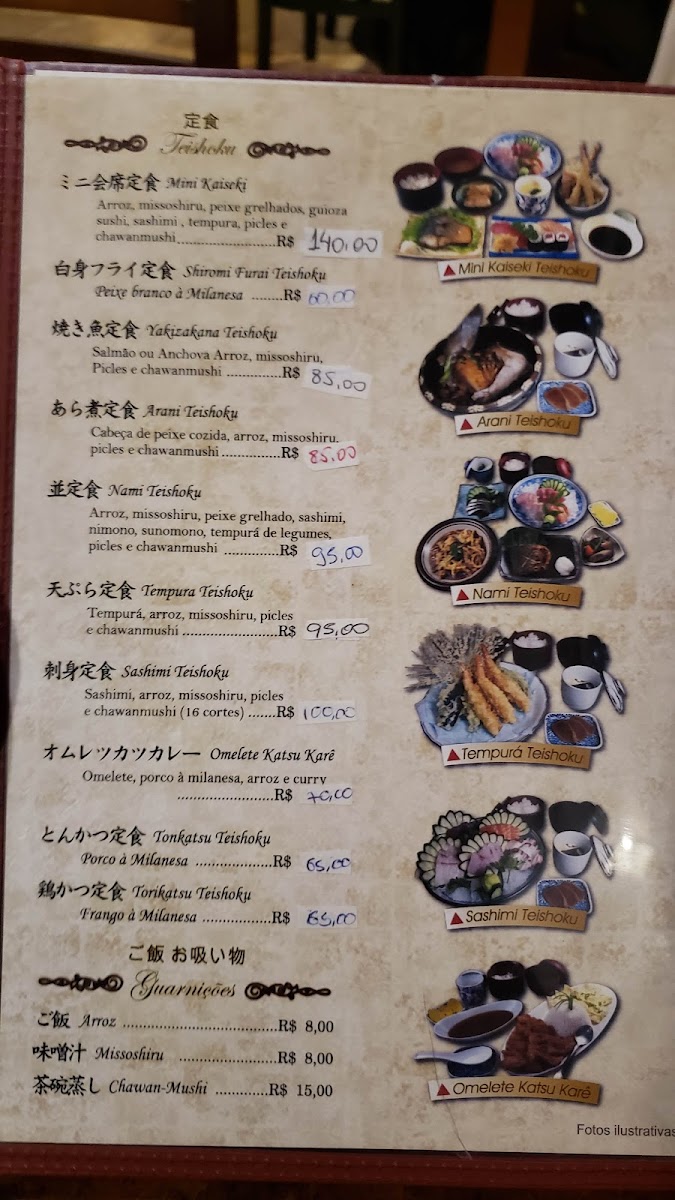 定食
Teishoku
ミニ会席定食 Mini Kaiseki
Arroz, missoshiru, peixe grelhados, guioza
sushi, sashimi , tempura, picles e
chawanmushi........................R$ 140,00
白身フライ定食 Shiromi Furai Teishoku
Peixe branco à Milanesa ........R$ 60,00
焼き魚定食 Yakizakana Teishoku
Salmão ou Anchova Arroz, missoshiru,
Picles e chawanmushi ..............R$ 85,00
あら煮定食 Arani Teishoku
Cabeça de peixe cozida, arroz, missoshiru.
picles e chawanmushi...............R$ 85,00
並定食 Nami Teishoku
Arroz, missoshiru, peixe grelhado, sashimi,
nimono, sunomono, tempurá de legumes,
picles e chawanmushi ..............R$ 95,00
天ぷら定食 Tempura Teishoku
Tempurá, arroz, missoshiru, picles
e chawanmushi ........................R$ 95,00
刺身定食 Sashimi Teishoku
Sashimi, arroz, missoshiru, picles
e chawanmushi (16 cortes) .......R$ 100,00
オムレツカツカレー Omelete Katsu Karê
Omelete, porco à milanesa, arroz e curry
........................R$ 70,00
とんかつ定食 Tonkatsu Teishoku
Porco à Milanesa ...................R$ 65,00
鶏かつ定食 Torikatsu Teishoku
Frango à Milanesa .................R$ 65,00
ご飯 お吸い物
Guarnições
ご飯 Arroz ......................................R$ 8,00
味噌汁 Missoshiru ........................R$ 8,00
茶碗蒸し Chawan-Mushi .............R$ 15,00
Mini Kaiseki Teishoku
Arani Teishoku
Nami Teishoku
Tempurá Teishoku
Sashimi Teishoku
Omelete Katsu Karê
Fotos ilustrativas